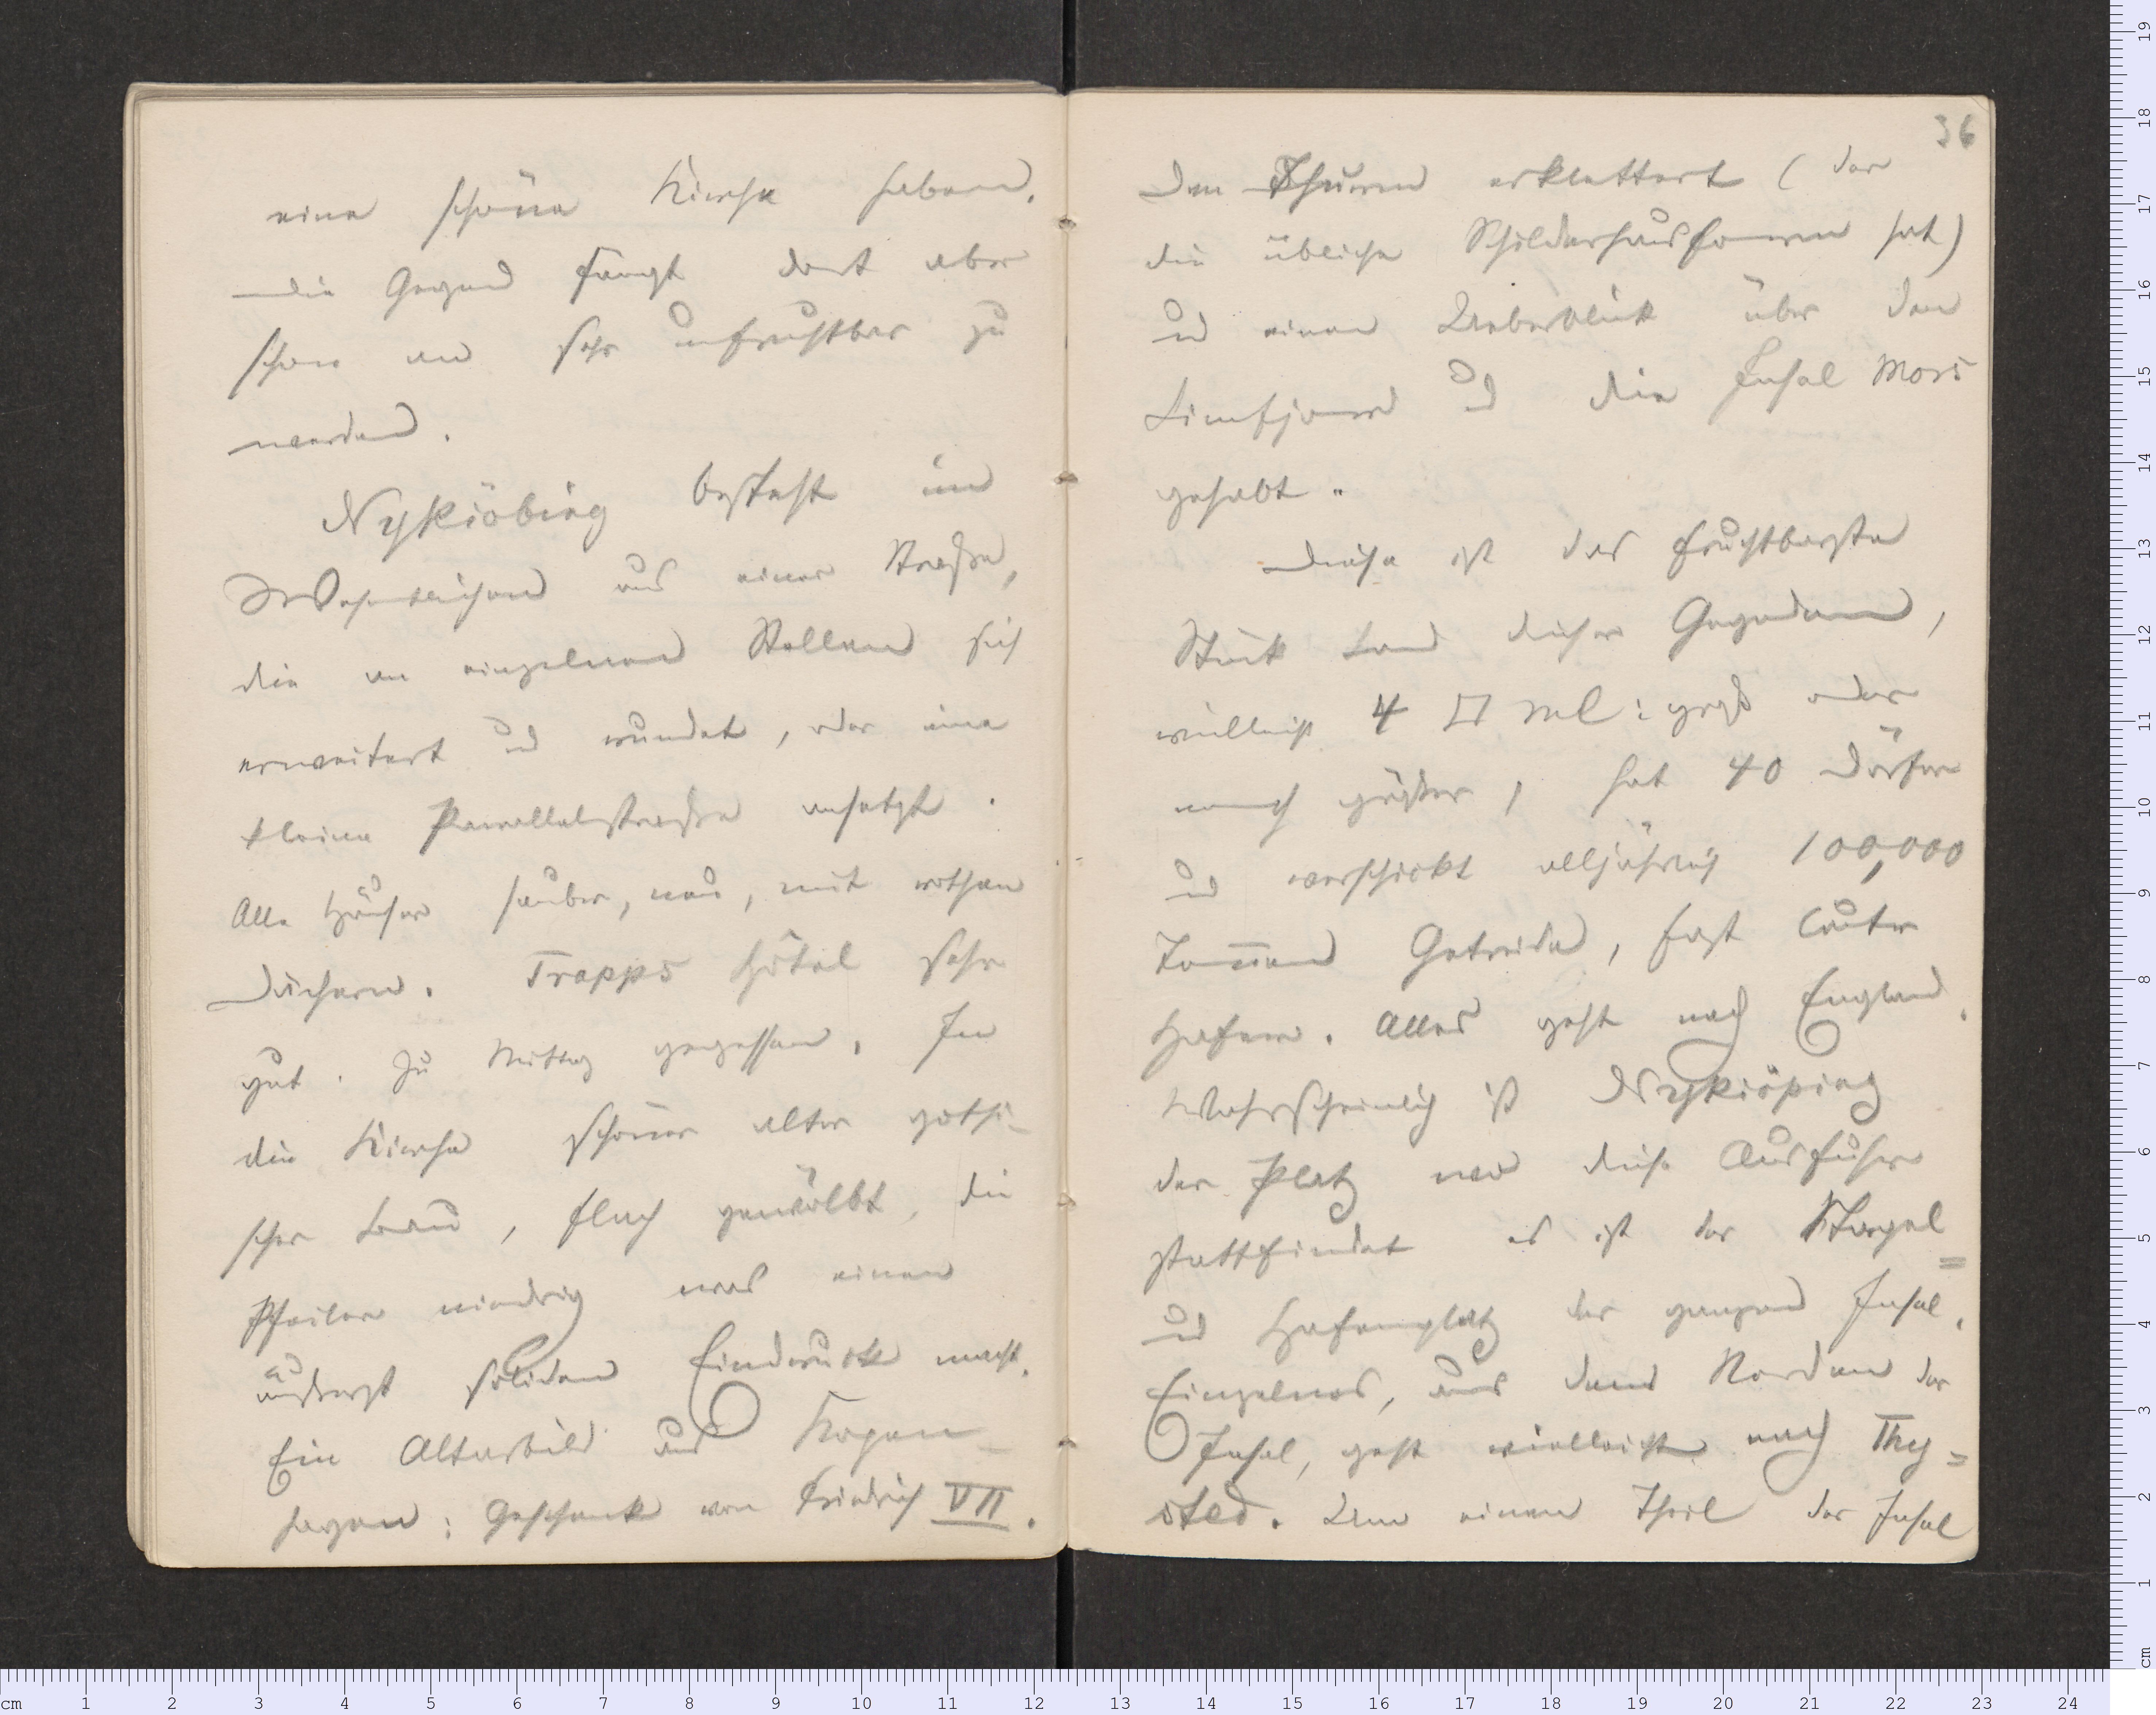 eine schöne Kirche haben.
die Gegend fängt dort aber
schon an sehr unfruchtbar zu
werden.
Nykiöbing besteht im
Wesentlichen aus einer Straße,
die an einzelnen Stellen sich
erweitert und rundet, oder eine
kleine Parallelstraße ansetzt.
Alle Häuser sauber, neu, mit rothen
Dächern. Trapps Hôtel sehr
gut. Zu Mittag gegessen. In
die Kirche schöner alter gothi-
scher Bau, flach gewölbt, die
Pfeiler niedrig was einen
äußerst soliden Eindruck macht.
Ein Altarbild aus Kopen-
hagen; Geschenk von Friedrich VII.
36
Den Thurm erklettert (der
die übliche Schilderhausform hat)
und einen Ueberblick über den
Limfjord und die Insel Mors
gehabt.
Diese ist das fruchtbarste
Stück Land dieser Gegenden,
vielleicht 4 □ Ml: groß oder
noch größer, hat 40 Dörfer
und verschickt alljährlich 100,000
Tonnen Getreide, fast lauter
Hafer. Alles geht nach England.
Wahrscheinlich ist Nykiöping
der Platz wo diese Ausfuhr
stattfindet es ist der Stapel=
und Hafenplatz der ganzen Insel.
Einzelnes, aus dem Norden der
Insel, geht vielleicht nach Thy=
sted. Um einen Theil der Insel
cm 1 2 3 4 5 6 7 8 9 10 11 12 13 14 15 16 17 18 19 20 21 22 23 24
cm 1 2 3 4 5 6 7 8 9 10 11 12 13 14 15 16 17 18 19